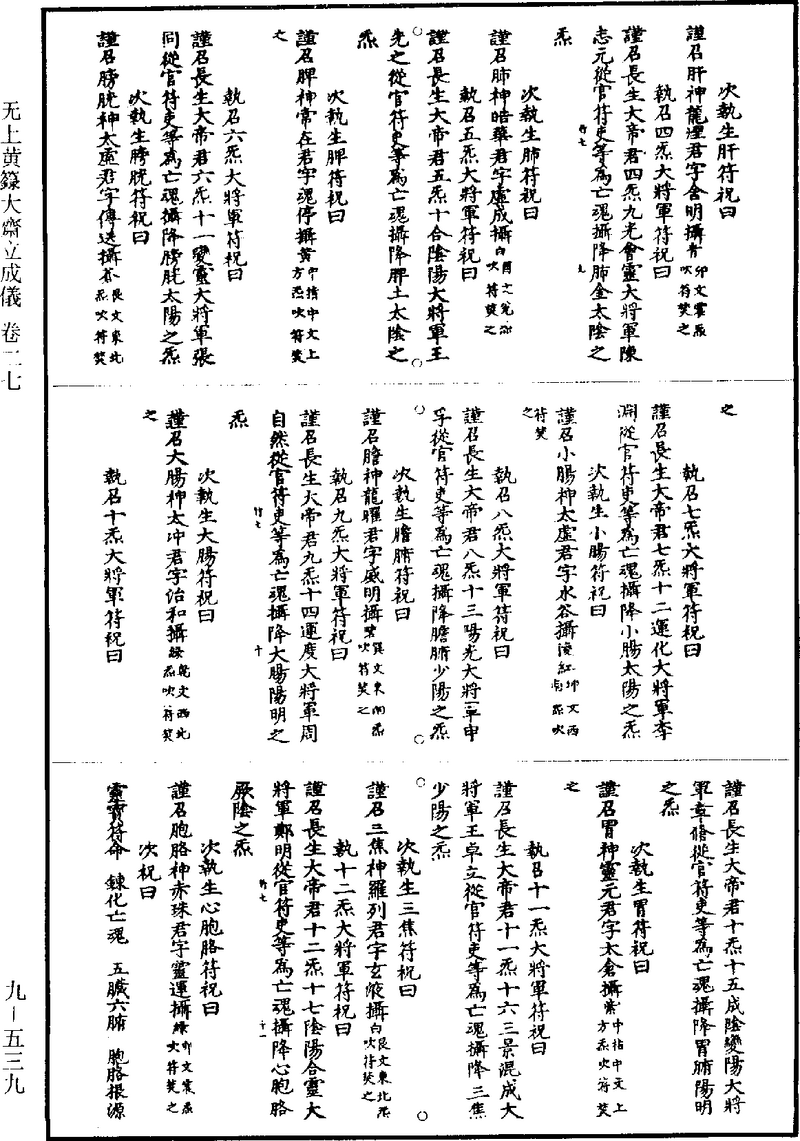 次執生肝符祝曰
謹召肝神龍煙君字含明攝青卯文震炁吹符焚之
執召四炁大將軍符祝曰
謹召長生大帝君四炁九光會靈大將軍陳
志元從官符吏等為亡魂攝降肺金太陰之
炁
次執生肺符祝曰
謹召肺神皓華君字虛成攝白酉文兌炁吹符焚之
執召五炁大將軍符祝曰
謹召長生大帝君五炁十合陰陽大將軍王
光之從官符吏等為亡魂攝降脾土太陰之
炁
次執生脾符祝曰
謹召脾神常在君字魂停攝黃中指中文上方炁吹符焚
之
執召六炁大將軍符祝曰
謹召長生大帝君六炁十一變靈大將軍張
同從官符吏等為亡魂攝降膀胱太陽之炁
次執生膀胱符祝曰
謹召膀胱神太虛君字傳送攝蒼艮文東北炁吹符焚
之
執召七炁大將軍符祝曰
謹召長生大帝君七炁十二運化大將軍李
淵從官符吏等為亡魂攝降小腸太陽之炁
次執生小腸符祝曰
謹召小腸神太虛君字水谷攝淺紅坤文西南炁吹
符焚之
執召八炁大將軍符祝曰
謹召長生大帝君八炁十三陽光大將軍申
孚從官符吏等為亡魂攝降膽腑少陽之炁
次執生膽腑符祝曰
謹召膽神龍曜君字威明攝紫巽文東南炁吹符焚之
執召九炁大將軍符祝曰
謹召長生大帝君九炁十四運度大將軍周
自然從官符吏等為亡魂攝降大腸陽明之
炁
次執生大腸符祝曰
謹召大腸神太冲君字治和攝綠乾文西北炁吹符焚
之
執召十炁大將軍符祝曰
謹召長生大帝君十炁十五成陰變陽大將
軍章脩從官符吏等為亡魂攝降胃腑陽明
之炁
次執生胃符祝曰
謹召胃神靈元君字太倉攝紫中指中文上方炁吹符焚
之
執召十一炁大將軍符祝曰
謹召長生大帝君十一炁十六三景混成大
將軍王卓立從官符吏等為亡魂攝降三焦
少陽之炁
次執生三焦符祝曰
謹召三焦神羅列君字玄液攝白艮文東北炁吹符焚之
執十二炁大將軍符祝曰
謹召長生大帝君十二炁十七陰陽合靈大
將軍鄭明從官符吏等為亡魂攝降心胞胳
厥陰之炁
次執生心胞胳符祝曰
謹召胞胳神赤珠君字靈運攝綠卯文震炁吹符焚之
次祝曰
靈寶符命 鍊化亡魂 五臟六腑 胞胳根源
无上黄籙大齋立成儀 卷二七
九—五三九